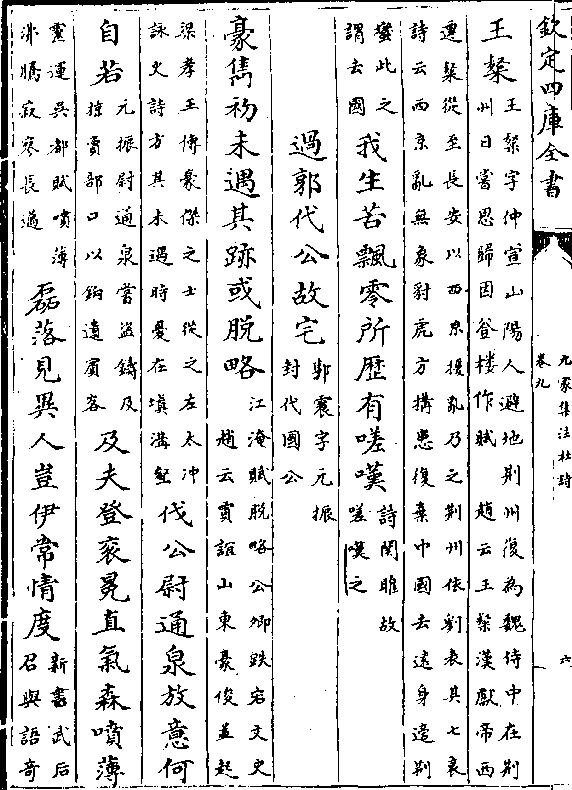 欽定四庫全書
王粲王粲字仲宣山陽人避地荆州復為魏侍中在荆
州日嘗思歸因登樓作賦 趙云王粲漢獻帝西
遷粲從至長安以西京擾亂乃之荆州依劉表其七哀
詩云西京亂無象豺虎方搆患復棄中國去逺身適荆
蠻此之
謂去國我生苦飄零所歴有嗟嘆詩關雎故
嗟嘆之
過郭代公故宅郭震字元振
封代國公
豪雋初未遇其跡或脱略江淹賦脱略公卿跌宕文史
趙云賈誼山東豪俊並起
梁孝王傳豪傑之士從之左太冲
詠史詩方其未遇時憂在填溝壑代公尉通泉放意何
自若元振尉通泉嘗盗鑄及
掠賣部口以餉遺賓客及夫登衮冕直氣森噴薄
靈運吳都賦噴薄
沸騰寂寥長邁磊落見異人豈伊常情度新書武后
召與語奇
九家集注杜詩
卷九
六